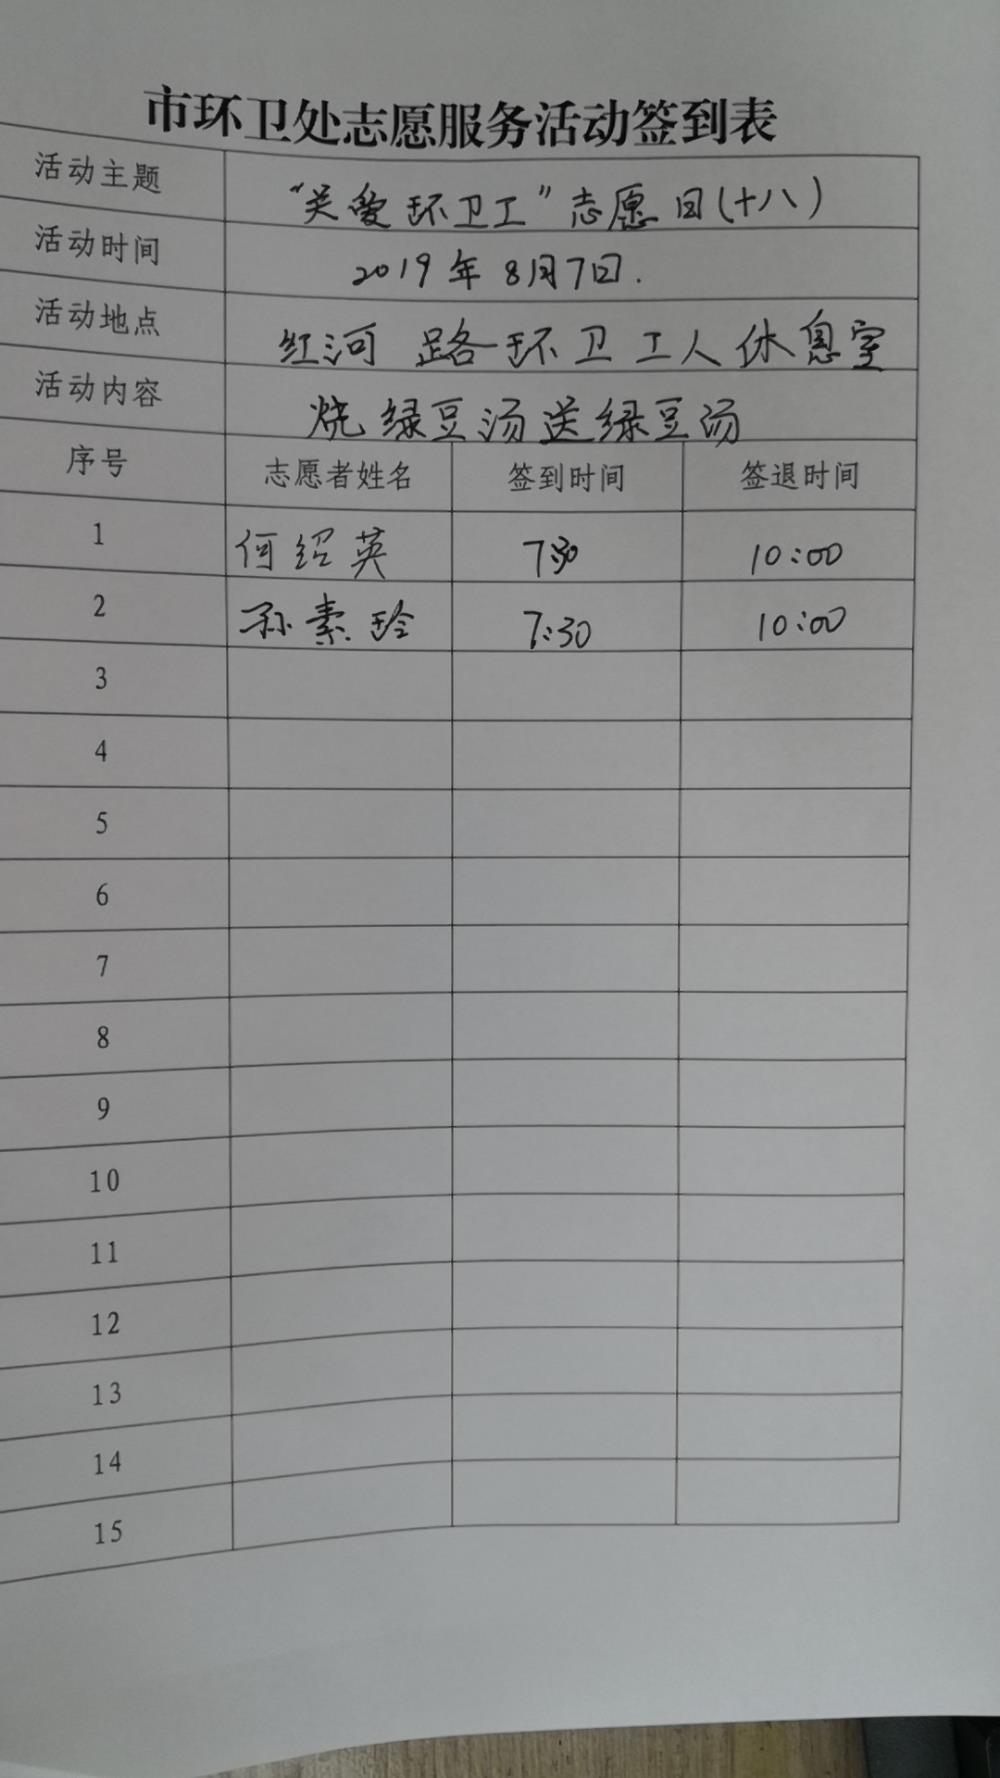 市环卫处志愿服务活动签到表
活动主题 “关爱环卫工”志愿日(十八)
活动时间 2019年8月7日.
活动地点 红河路环卫工人休息室
活动内容 烧绿豆汤送绿豆汤
序号 志愿者姓名 签到时间 签退时间
1 何绍英 7:30 10:00
2 孙素玲 7:30 10:00
3
4
5
6
7
8
9
10
11
12
13
14
15